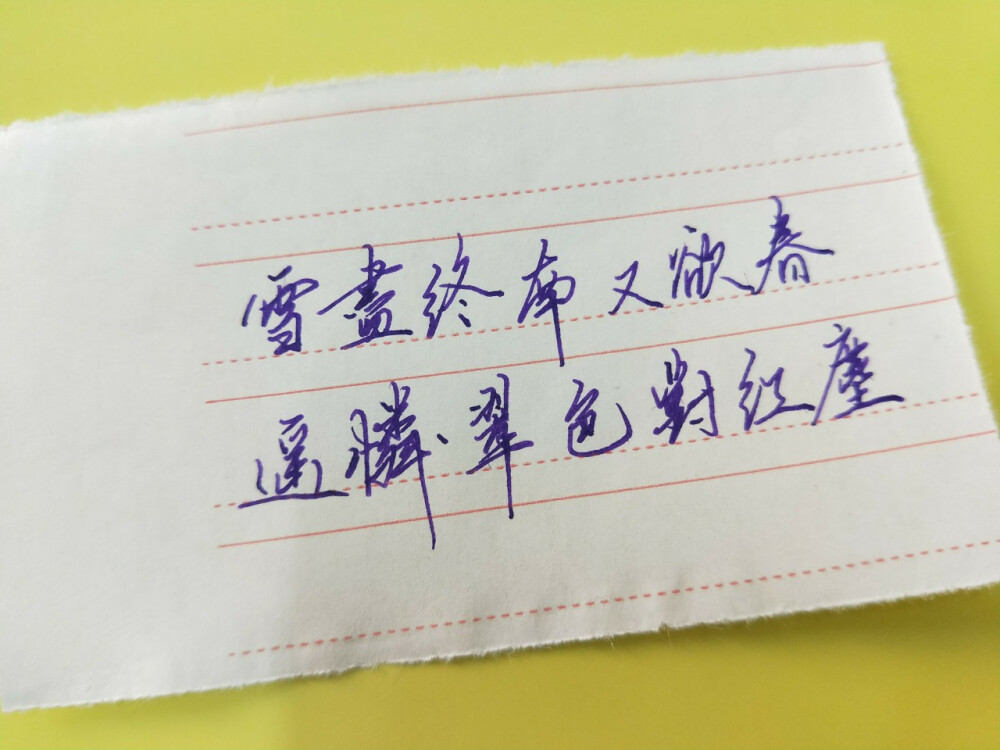 雪盡終南又欲春
遥憐翠色對紅塵